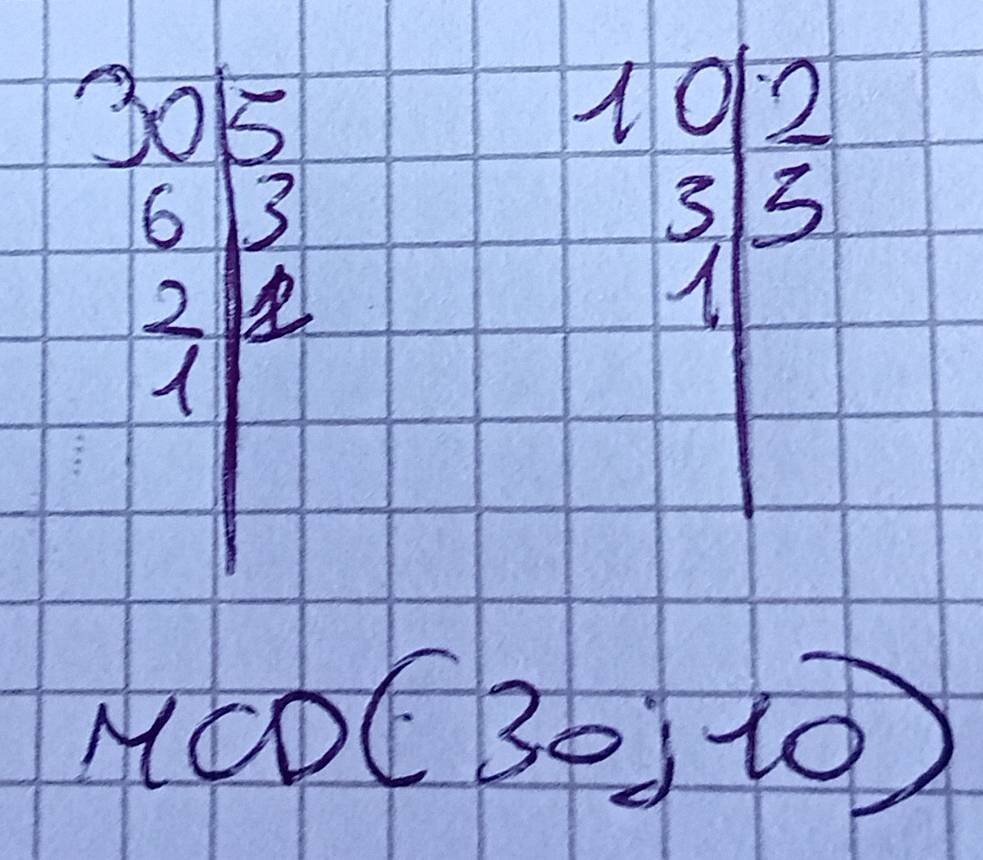 30|5 10|2
6|3 5|5
2|2 1|
1|
MCD(30;10)